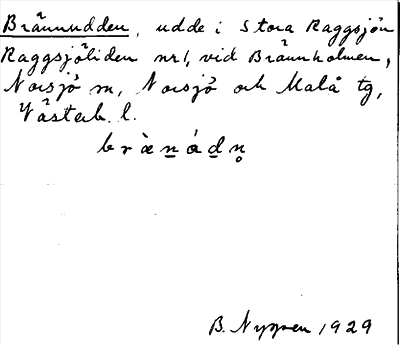 Brännudden, udde i Stora Raggsjön
Raggsjöliden nr 1, vid Brännholmen,
Norsjö sn, Norsjö och Malå tg,
Västerb. l.
bræ̀n̲ád̲n̥
B. Nygren 1929